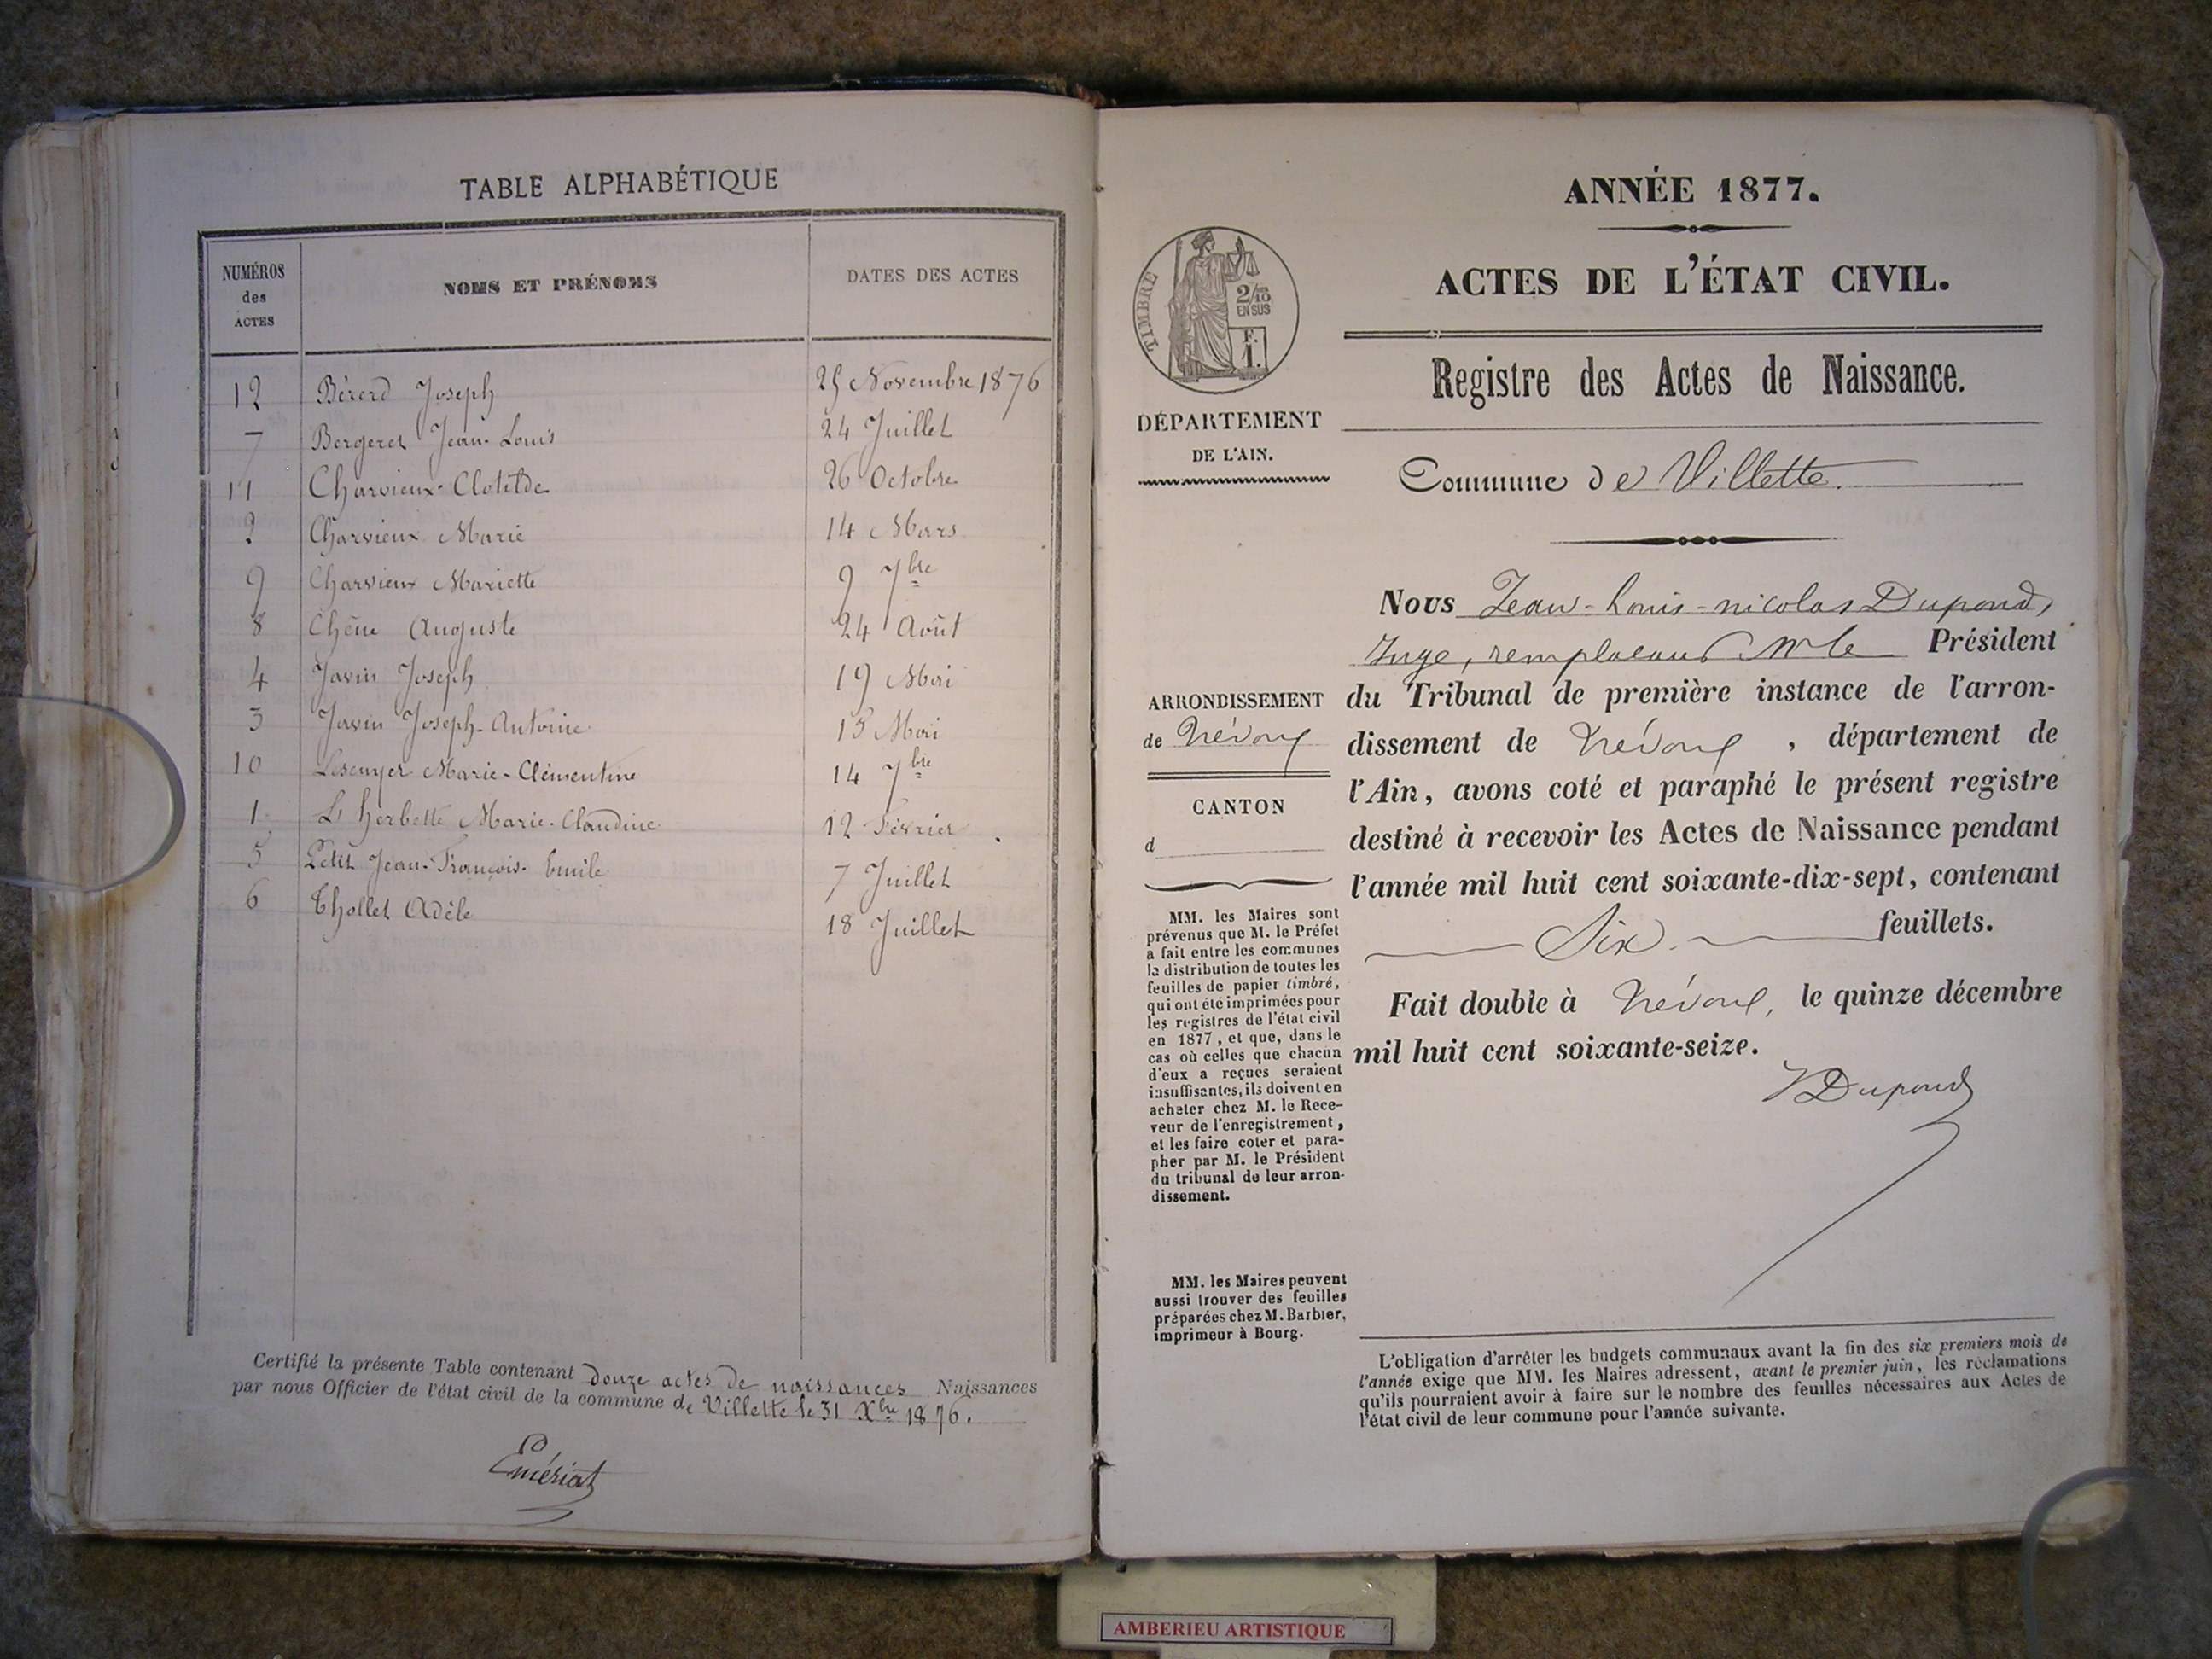 TABLE ALPHABÉTIQUE
NUMÉROS des ACTES NOMS ET PRÉNOMS DATES DES ACTES
12 Bérerd Joseph 25 Novembre 1876
7 Bergeret Jean-Louis 24 Juillet
11 Charvieux Clotilde 26 Octobre
2 Charvieux Marie 14 Mars
9 Charvieux Mariette 9 7bre
8 Chêne Auguste 24 Août
4 Javin Joseph 19 Mai
3 Javin Joseph-Antoine 15 Mai
10 Marie-Clémentine 14 7bre
1 L'herbette Marie-Claudine 12 Février
5 Petit Jean-François-Emile 7 Juillet
6 Thollet Adèle 18 Juillet
Certifié la présente Table contenant douze actes de naissances Naissances
par nous Officier de l'état civil de la commune de Villette le 31 Xbre 1876.
Emériat
ANNÉE 1877.
ACTES DE L'ÉTAT CIVIL.
TIMBRE
2/10
EN SUS
F.
1.
Registre des Actes de Naissance.
DÉPARTEMENT
DE L'AIN.
Commune de Villette.
Nous Jean-Louis-nicolas Dupond,
Juge, remplaçant Mr le Président
du Tribunal de première instance de l'arron-
dissement de Trévoux, département de
l'Ain, avons coté et paraphé le présent registre
destiné à recevoir les Actes de Naissance pendant
l'année mil huit cent soixante-dix-sept, contenant
Six feuillets.
Fait double à Trévoux, le quinze décembre
mil huit cent soixante-seize.
Dupond
ARRONDISSEMENT
de Trévoux
CANTON
d
MM. les Maires sont
prévenus que M. le Préfet
a fait entre les communes
la distribution de toutes les
feuilles de papier timbré,
qui ont été imprimées pour
les registres de l'état civil
en 1877, et que, dans le
cas où celles que chacun
d'eux a reçues seraient
insuffisantes, ils doivent en
acheter chez M. le Rece-
veur de l'enregistrement,
et les faire coter et para-
pher par M. le Président
du tribunal de leur arron-
dissement.
MM. les Maires peuvent
aussi trouver des feuilles
préparées chez M. Barbier,
imprimeur à Bourg.
L'obligation d'arrêter les budgets communaux avant la fin des six premiers mois de
l'année exige que MM. les Maires adressent, avant le premier juin, les réclamations
qu'ils pourraient avoir à faire sur le nombre des feuilles nécessaires aux Actes de
l'état civil de leur commune pour l'année suivante.
AMBERIEU ARTISTIQUE